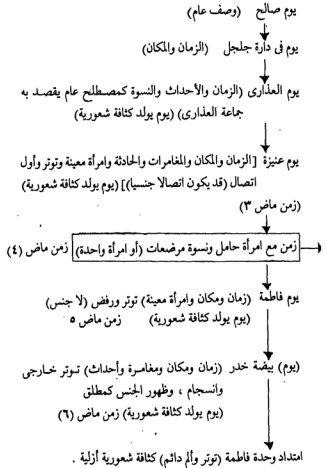 يوم صالح (وصف عام)
يوم فى دارة جلجل (الزمان والمكان)
يوم العذارى (الزمان والأحداث والنسوة كمصطلح عام يقصد به
جماعة العذارى) (يوم يولد كثافة شعورية)
يوم عنيزة [الزمان والمكان والمغامرات والحادثة وامرأة معينة وتوتر وأول
اتصال (قد يكون اتصالا جنسيا)] (يوم يولد كثافة شعورية)
(زمن ماض ٣)
زمن مع امرأة حامل ونسوة مرضعات (أو امرأة واحدة) زمن ماض (٤)
يوم فاطمة (زمان ومكان وامرأة معينة) توتر ورفض (لا جنس)
(يوم يولد كثافة شعورية) زمن ماض ٥
(يوم) بيضة خدر (زمان ومكان ومغامرة وأحداث) توتر خارجى
وانسجام ، وظهور الجنس كمطلق
(يوم يولد كثافة شعورية) زمن ماض (٦)
امتداد وحدة فاطمة (توتر وألم دائم) كثافة شعورية أزلية .